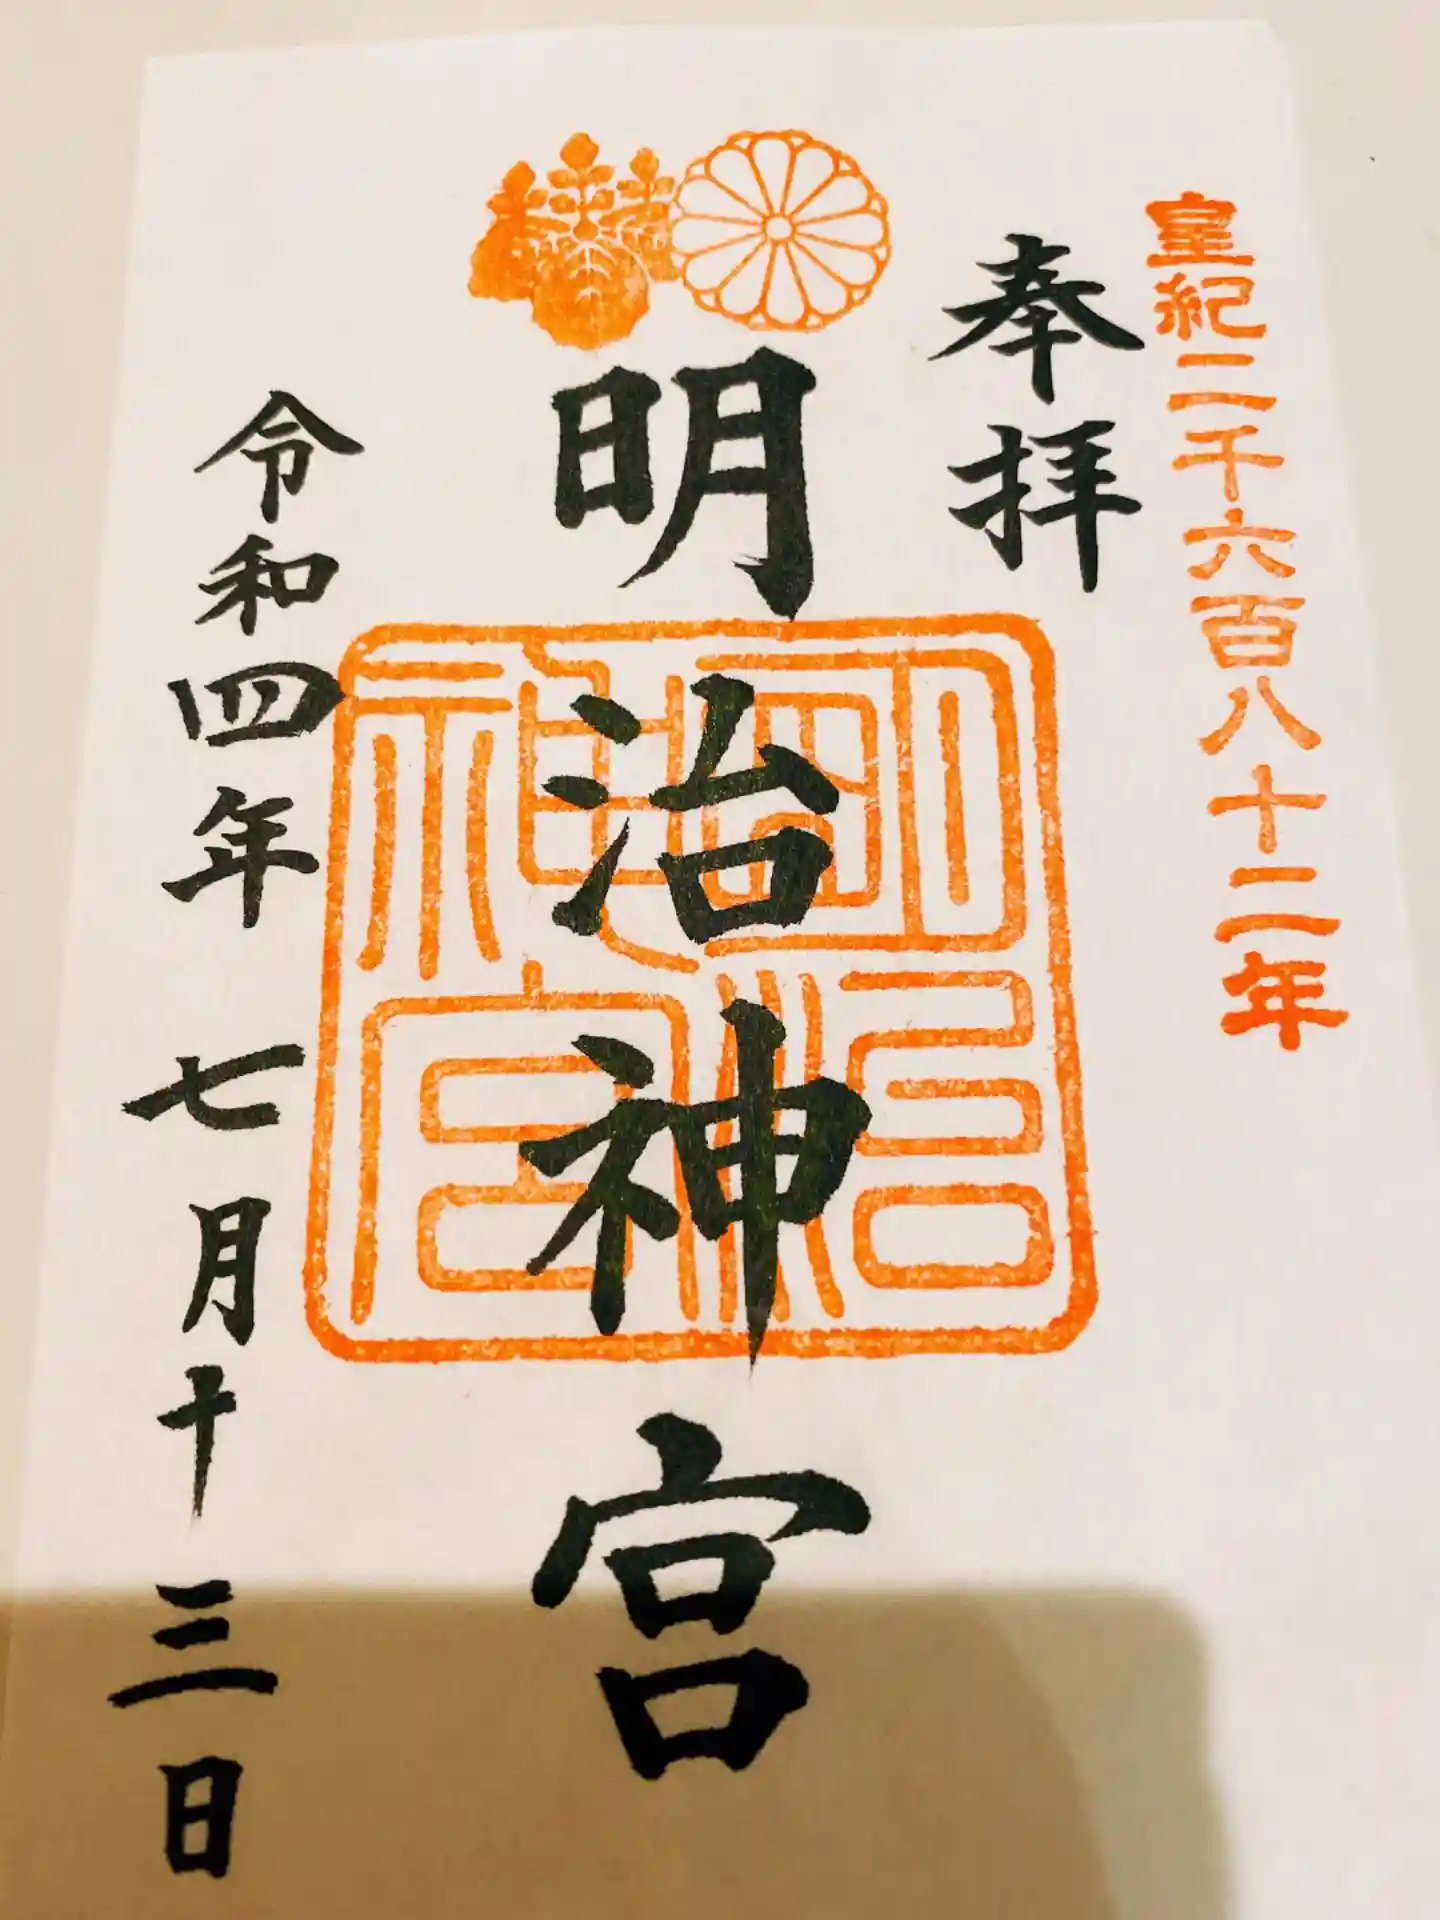 皇紀二千六百八十二年
奉拝
明治神宮
明治神宮
令和四年七月十三日